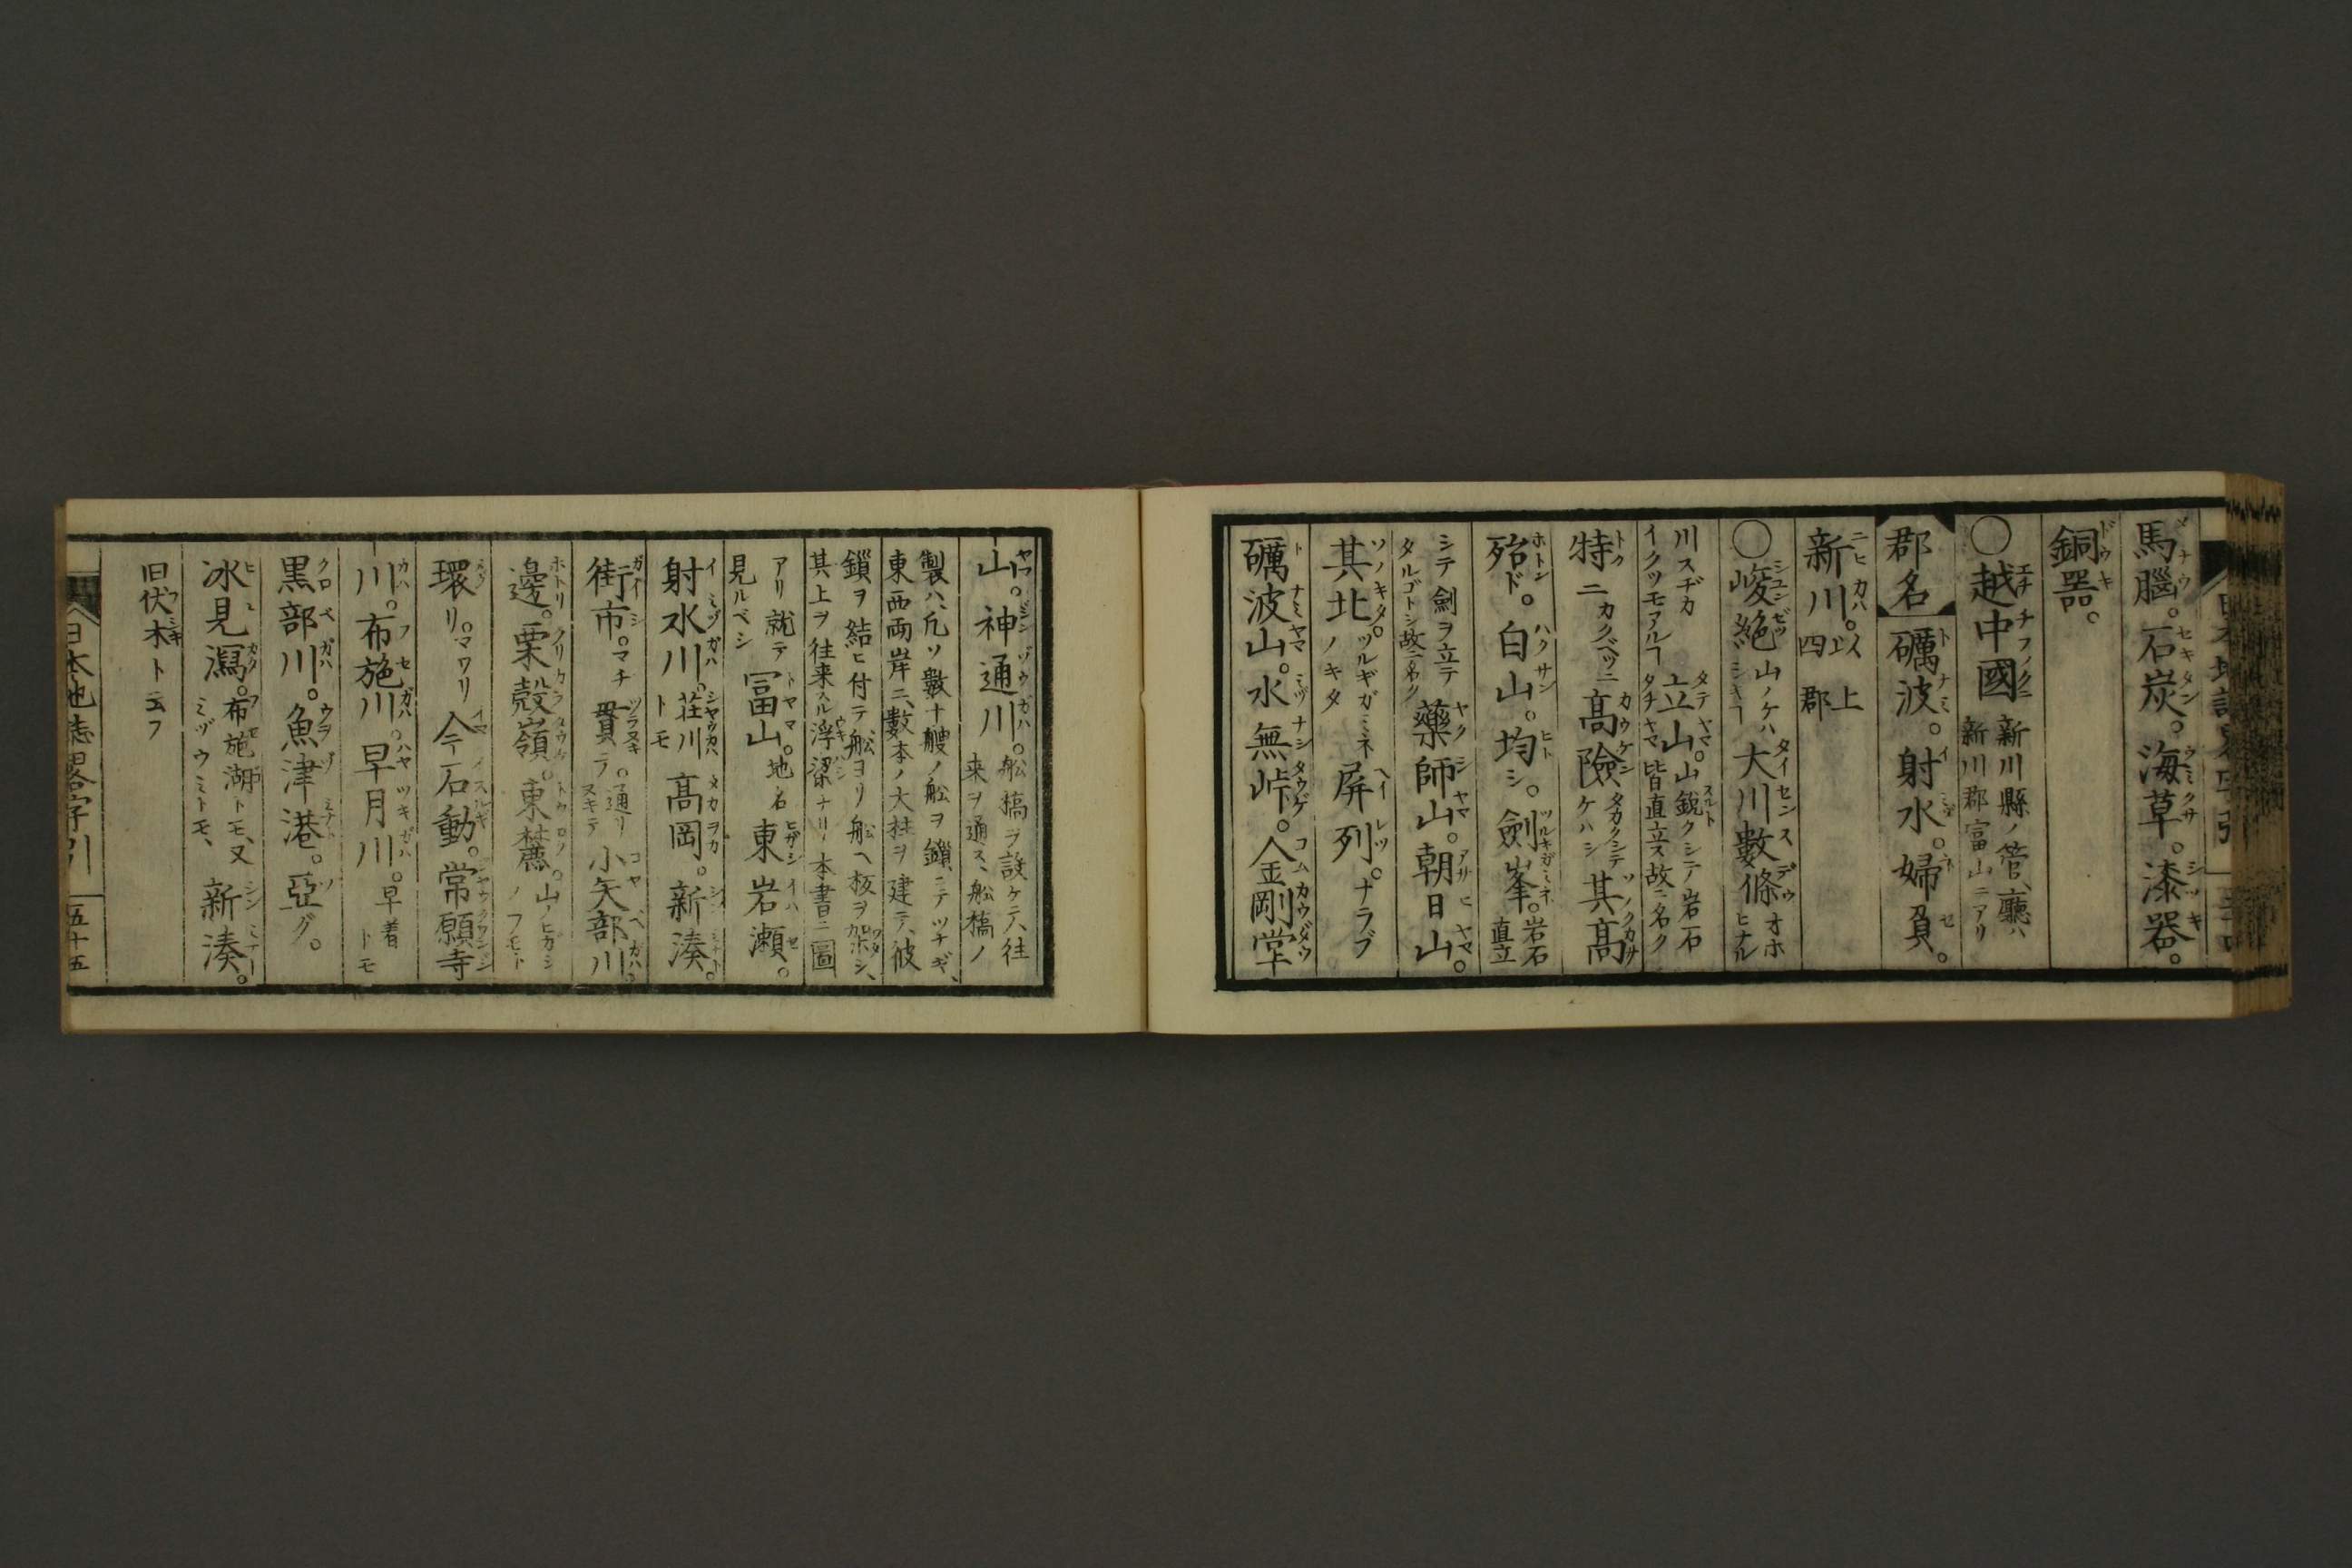 馬腦。石炭。海草。漆器。
銅器。
〇越中國 新川縣ノ管、廳ハ
新川郡富山ニアリ
郡名 礪波。射水。婦負。
新川。以上
四郡
〇峻絶 山ノケハ
シキヿ 大川數條 オホヒナル
川スヂカ
イクツモアルヿ 立山。山鋭クシテ岩石
皆直立ス故ニ名ク
特ニ カクベツニ 高險 タカクシテ
ケハシ 其高
殆ド。白山。均シ。劍峯。岩石
直立
シテ劍ヲ立テ
タルゴトシ故ニ名ク 藥師山。朝日山。
其北。ツルギガミネ
ノキタ 屏列。ナラブ
礪波山。水無峠。金剛堂
山。神通川。舩槗ヲ設ケテ、往
来ヲ通ス、舩槗ノ
製ハ、凢ソ數十艘ノ舩ヲ鎖ニテツナギ、
東西両岸ニ、數本ノ大柱ヲ建テ、彼
鎖ヲ結ヒ付テ舩ヨリ舩ヘ板ヲ架シ、
其上ヲ往来スル浮梁ナリ、本書ニ圖
アリ就テ
見ルベシ 冨山。地名 東岩瀬。
射水川。荘川
トモ 高岡。新湊。
街市。マチ 貫ラ。通リ
ヌキテ 小矢部川。
邊。栗殻嶺。東麓。山ノヒガシ
ノフモト
環リ。マワリ 今石動。常願寺
川。布施川。早月川。早着
トモ
黒部川。魚津港。亞グ。
氷見潟。布施湖トモ、又
ミヅウミトモ、 新湊。
旧伏木ト云フ
日本地誌畧字引 五十五